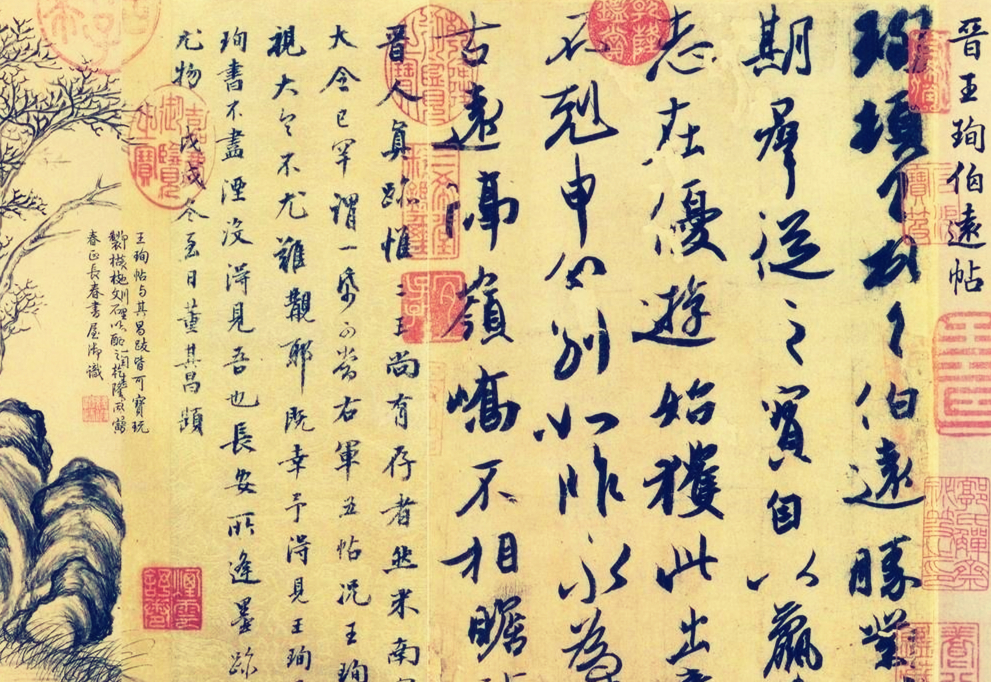 晉王珣伯遠帖
珣頓首頓首伯遠勝業
期群從之寶自以羸
志在優遊始獲此出
不剋申分別如昨永為
古遠隔嶺嶠不相瞻
晉人真跡惟二王尚有存者然米南
大令已罕謂一紙可當右軍五帖況王珣
視大令不尤難覯耶既幸予得見王珣
珣書不盡湮沒得見吾也長安所逢墨跡
尤物戊戌冬至日董其昌題
王珣帖与其昌跋皆可寶玩
枝文石以配之乾隆丙寅
春正長春書屋御識
乾隆鑑賞
三希堂精鑑璽
宜子孫
嘉慶御覽之寶